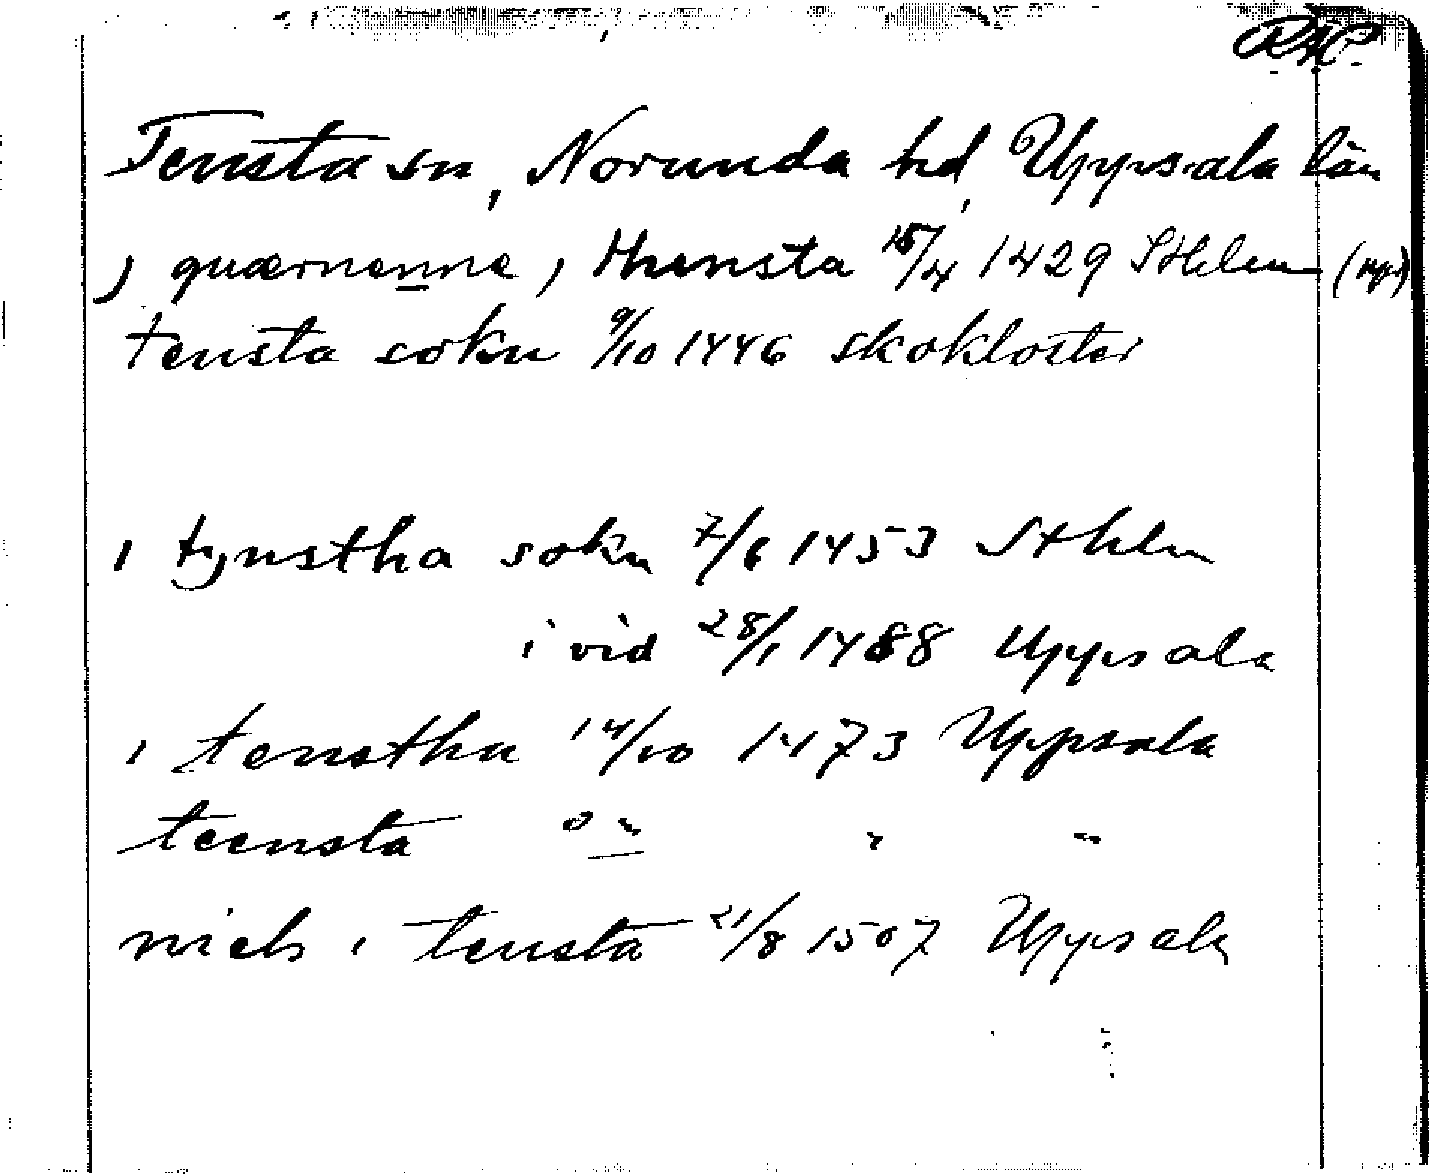 RAP
Tensta sn, Norunda hd, Uppsala län
j quærnenne, thensta 15/4 1429 Sthlm (rp)
tensta sokn 9/10 1446 skokloster
i tynstha sokn 7/6 1453 Sthlm
i vid 28/1 1488 Uppsala
i tenstha 14/10 1473 Uppsala
teensta o " " "
niels i tensta 21/8 1507 Uppsala